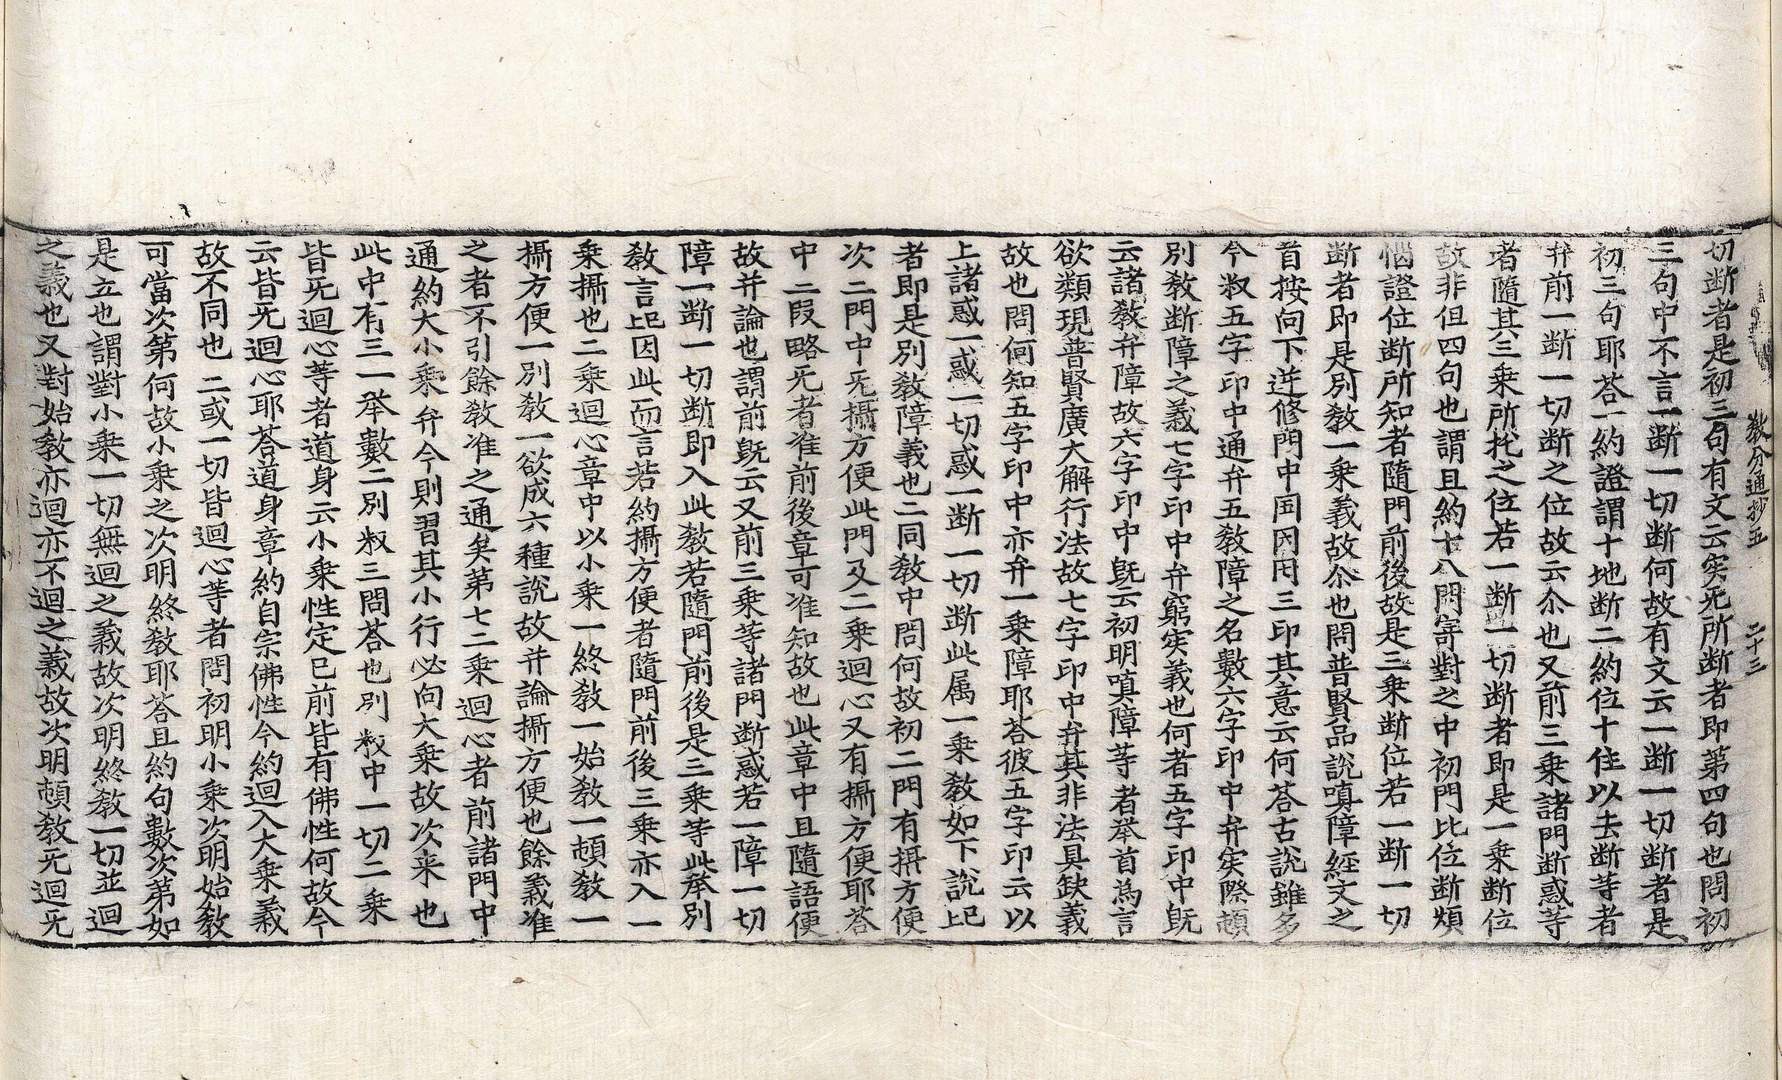 教分通抄五　二十三
切断者是初三句有文云实无所断者即第四句也問初
三句中不言一断一切断何故有文云一断一切断者是
初三句耶荅一約證謂十地断二約位十住以去断等者
弁前一断一切断之位故云尒也又前三乘諸門断惑等
者隨其三乘所托之位若一断一切断者即是一乘断位
故非但四句也謂且約十八門寄對之中初門比位断煩
惱證位断所知者隨門前後故是三乘断位若一断一切
断者即是別敎一乘義故尒也問普賢品說嗔障經文之
首按向下迸修門中国因用三印其意云何荅古說雖多
今叙五字印中通弁五敎障之名數六字印中弁实際頓
別敎断障之義七字印中弁窮实義也何者五字印中旣
云諸敎弁障故六字印中旣云初明嗔障等者举首為言
欲類現普賢廣大解行法故七字印中弁其非法具缺義
故也問何知五字印中亦弁一乘障耶荅彼五字印云以
上諸惑一惑一切惑一断一切断此属一乘敎如下說記
者即是別敎障義也二同敎中問何故初二門有攝方便
次二門中无攝方便此門及二乘迴心又有攝方便耶荅
中二段略无者准前後章可准知故也此章中且隨語便
故并論也謂前旣云又前三乘等諸門断惑若一障一切
障一断一切断即入此敎若隨門前後是三乘等此举別
敎言記因此而言若約攝方便者隨門前後三乘亦入一
乘攝也二乘迴心章中以小乘一終敎一始敎一頓敎一
攝方便一別敎一欲成六種說故并論攝方便也餘義准
之者不引餘敎准之通矣第七二乘迴心者前諸門中
通約大小乘弁今則習其小行必向大乘故次来也
此中有三一举數二別叙三問荅也別叙中一切二乘
皆无迴心等者道身云小乘性定已前皆有佛性何故今
云皆无迴心耶荅道身章約自宗佛性今約迴入大乘義
故不同也二或一切皆迴心等者問初明小乘次明始敎
可當次第何故小乘之次明終敎耶荅且約句數次第如
是立也謂對小乘一切無迴之義故次明終敎一切並迴
之義也又對始敎亦迴亦不迴之義故次明頓敎无迴无